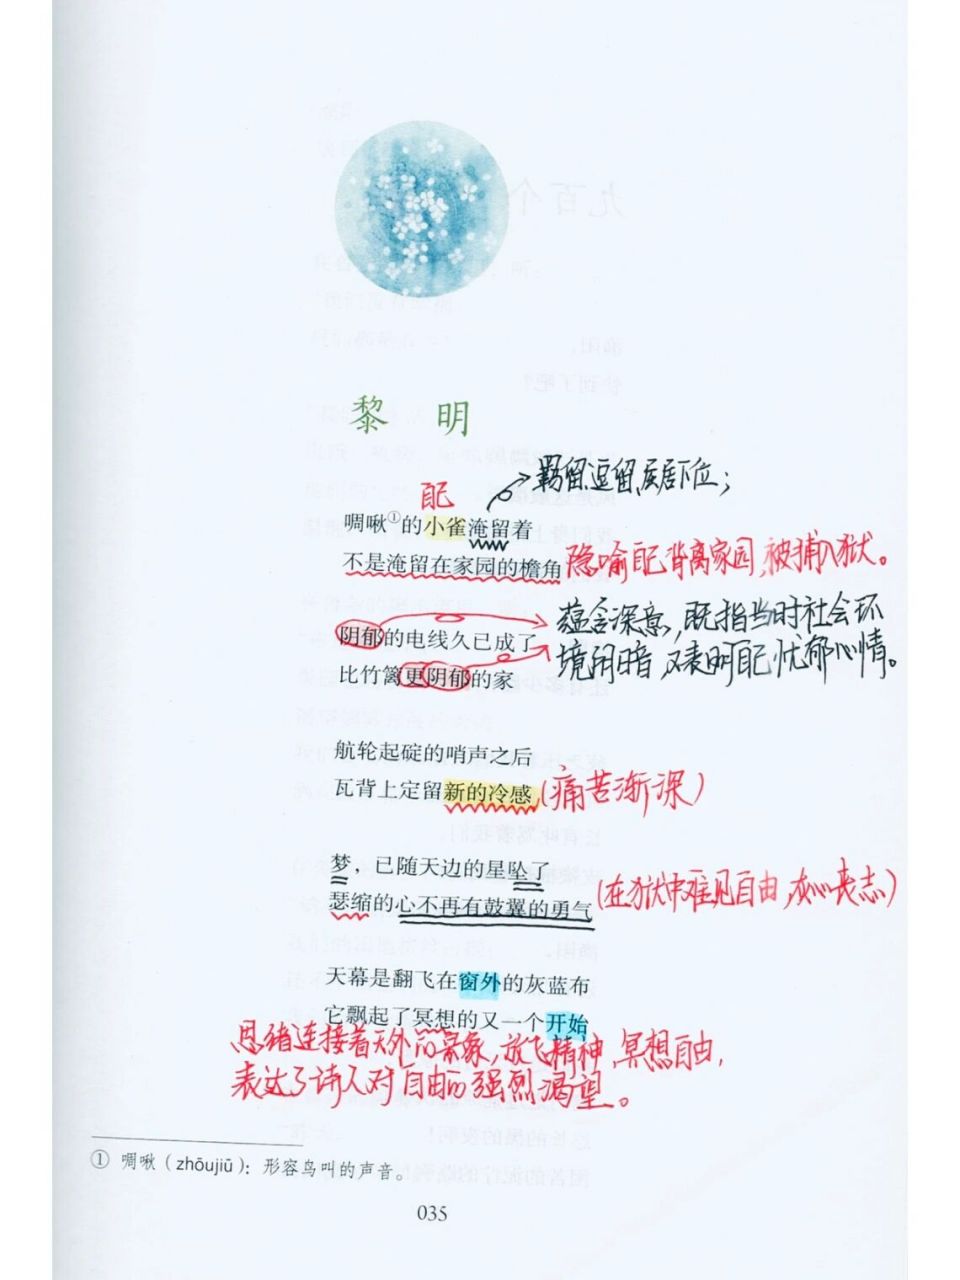 黎 明
自己
→羁留、逗留、屈居下位；
啁啾①的小雀淹留着
不是淹留在家园的檐角
隐喻自己背离家园，被捕入狱。
阴郁的电线久已成了
比竹篱更阴郁的家
蕴含深意，既指当时社会环
境阴暗，又表明自己忧郁心情。
航轮起碇的哨声之后
瓦背上定留新的冷感
(痛苦渐深)
梦，已随天边的星坠了
瑟缩的心不再有鼓翼的勇气
(在狱中难见自由，灰心丧志)
天幕是翻飞在窗外的灰蓝布
它飘起了冥想的又一个开始
思绪连接着天外的景象，放飞精神，冥想自由，
表达了诗人对自由的强烈渴望。
① 啁啾（zhōujiū）：形容鸟叫的声音。
035